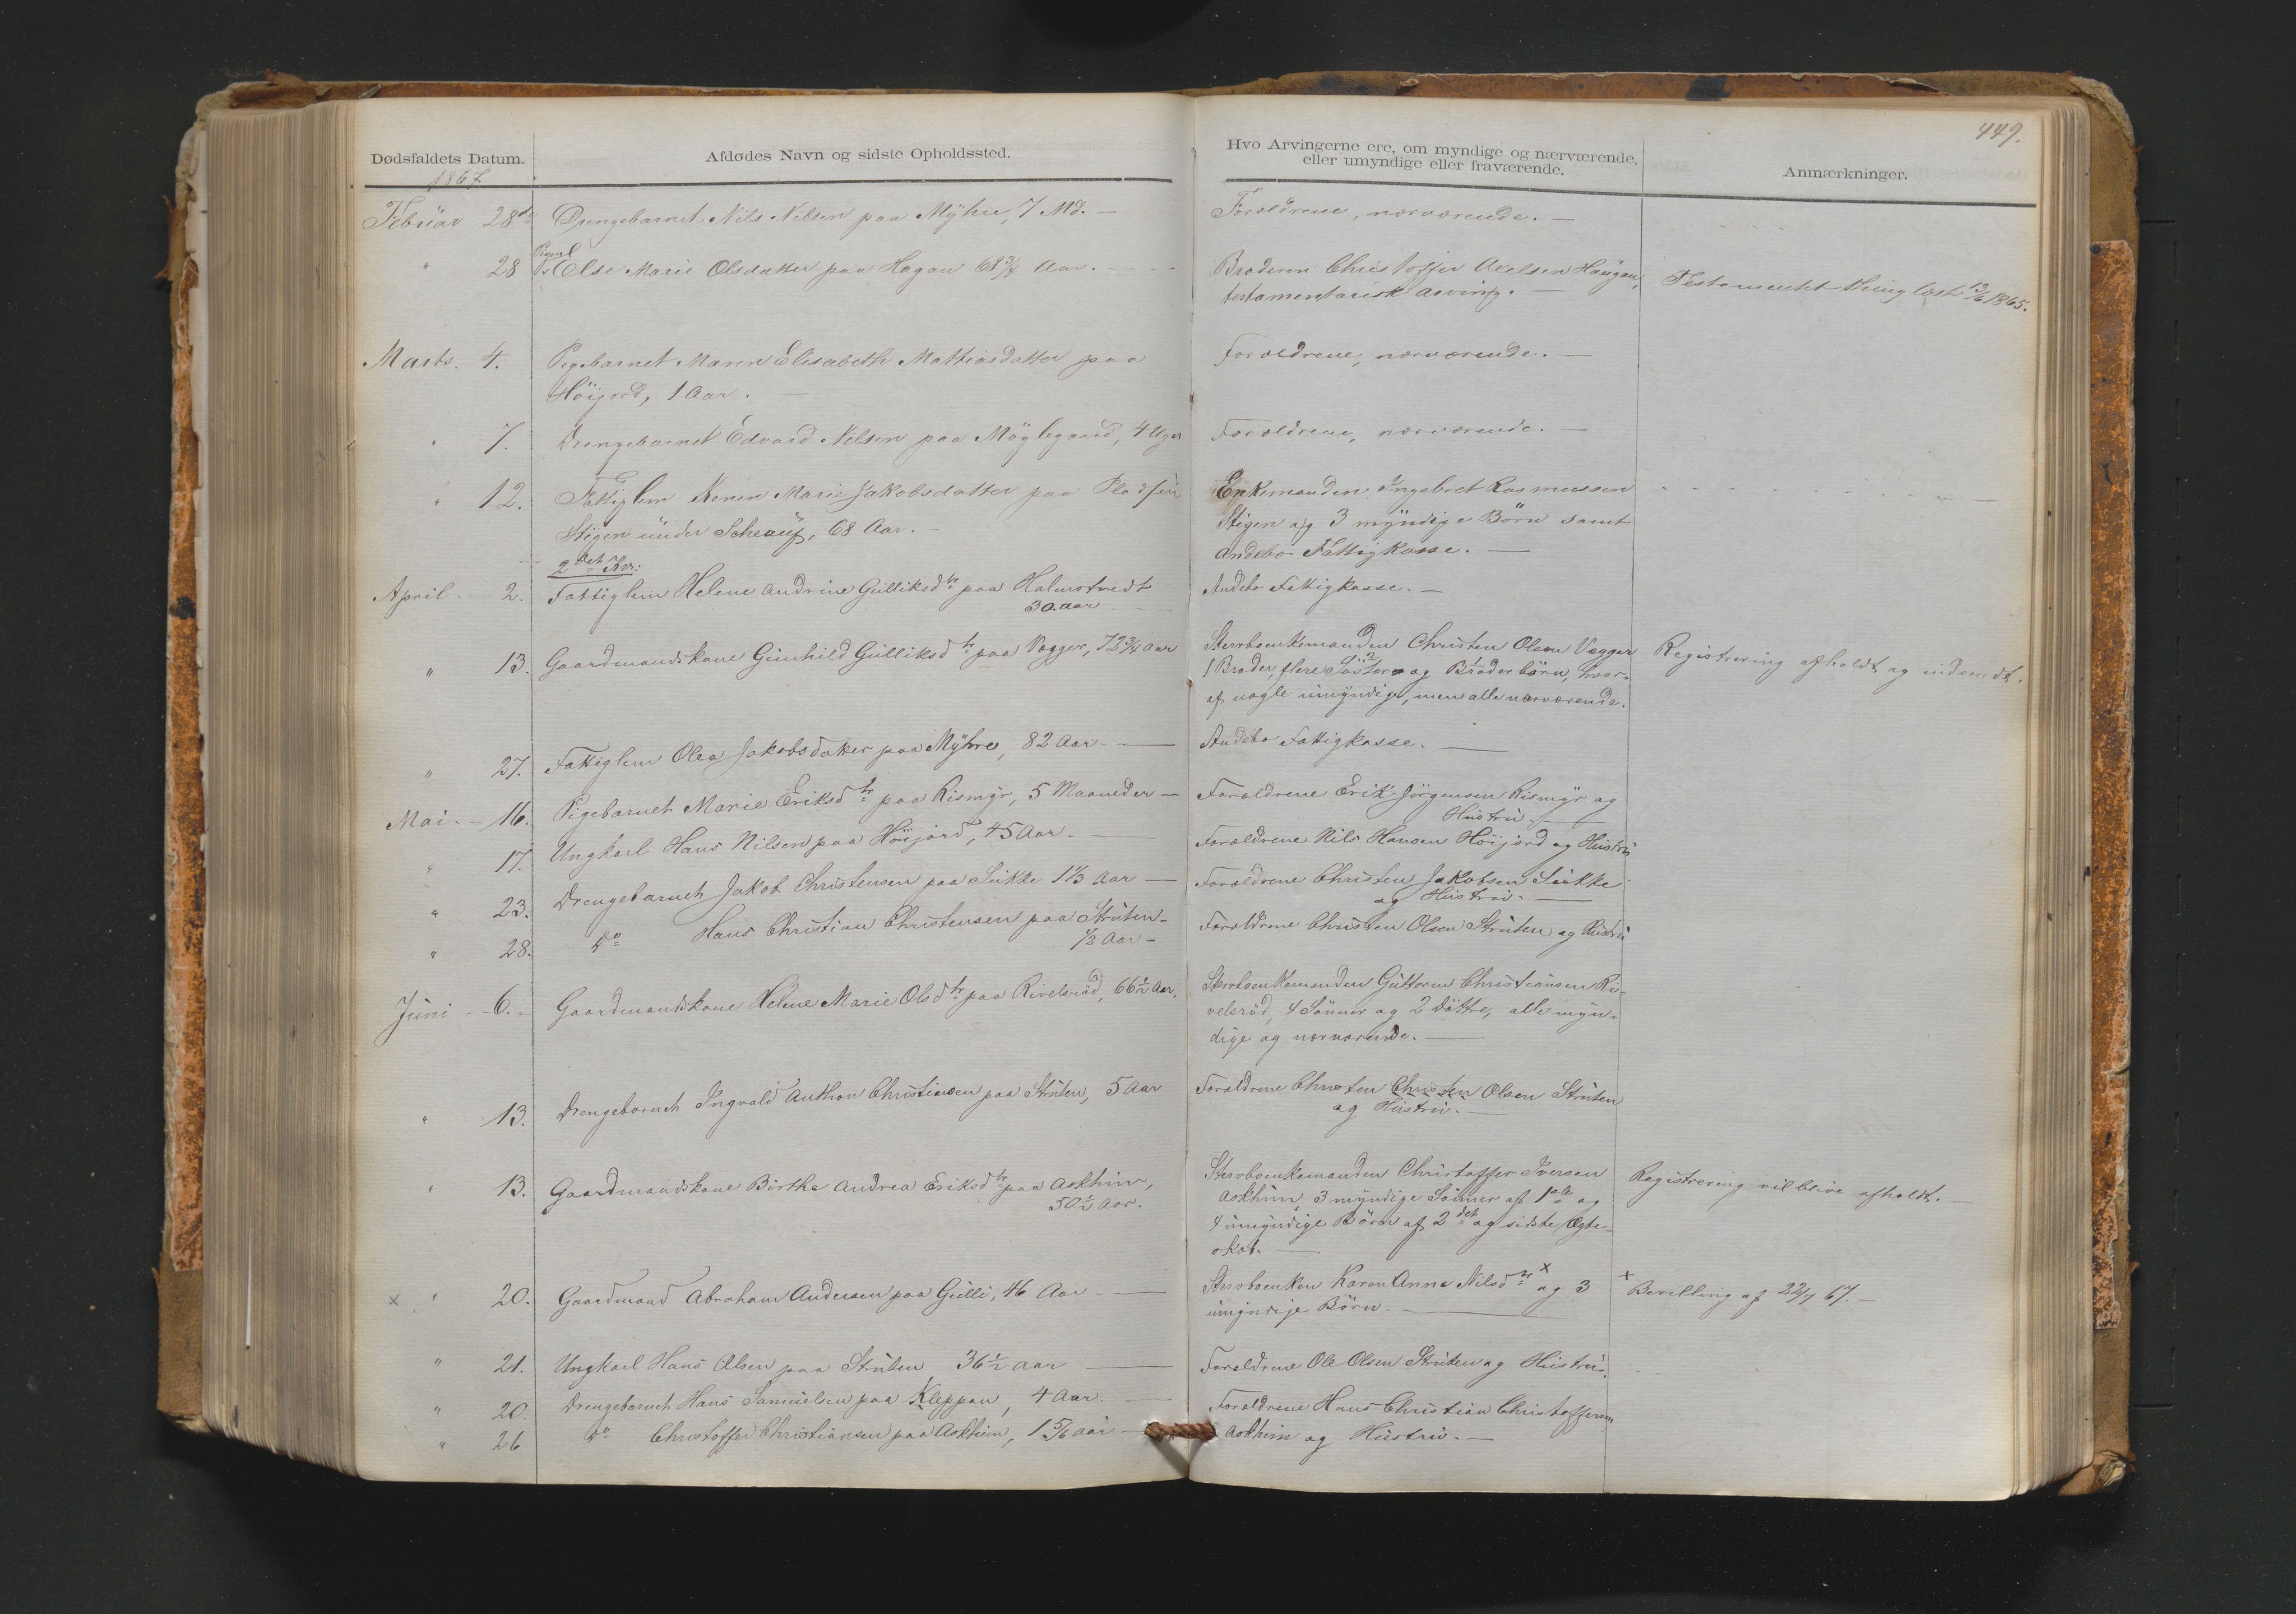 449.
Dødsfaldets Datum.
Afdødes Navn og sidste Opholdssted.
Hvo Arvingerne ere, om myndige og nærværende,
eller umyndige eller fraværende.
Anmærkninger.
1867
Februar 28de Drengebarnet Nils Nilsen paa Myhre, 7 Md. —
Forældrene, nærværende. —
" 28 Else Marie Olsdatter paa Hagan 68 3/4 Aar.
Broderen Christoffer Haugan,
testamentarisk Arving. —
Testamentet thinglæst 13/6 1865.
Marts 4. Pigebarnet Maren Elisabeth Mathiasdatter paa
Höijord, 1 Aar. —
Forældrene, nærværende. —
" 7. Drengebarnet Edvard Nilsen paa Möglegaard, 4 Uger
Forældrene, nærværende. —
" 12. Fattiglem Karen Marie Jakobsdatter paa Pladsen
Stigen under Schauf, 68 Aar. —
Enkemanden Ingebret Rasmussen
Stigen og 3 myndige Börn samt
Andebo Fattigkasse. —
2det Kv:
April 2. Fattiglem Helene Andrine Gulliksdtr paa Halmstvedt
30 Aar
Andebo Fattigkasse. —
" 13. Gaardmandskone Gunhild Gulliksdtr paa Vegger, 72 3/4 Aar
Stervboenkemanden Christen Olsen Vegger
1 Broder, flere Söster og Broderbörn, hvor-
af nogle umyndige, men alle nærværende.
Registrering afholdt og indsendt.
" 27. Fattiglem Olea Jakobsdatter paa Myhre, 82 Aar. —
Andebo Fattigkasse. —
Mai 16. Pigebarnet Marie Eriksdtr paa Rismyr, 5 Maaneder —
Forældrene Erik Jörgensen Rismyr og
Hustru. —
" 17. Ungkarl Hans Nilsen paa Höijord, 45 Aar. —
Forældrene Nils Hansen Höijord og Hustru
" 23. Drengebarnet Jakob Christensen paa Sukke 1 1/3 Aar —
Forældrene Christen Jakobsen Sukke
og Hustru. —
" 28. do Hans Christian Christensen paa Struten
1/3 Aar —
Forældrene Christen Olsen Struten og Hustru
Juni 6. Gaardmandskone Helene Marie Olsdtr paa Rivelsröd, 66 1/2 Aar.
Stervboenkemanden Guttorm Christiansen Ri-
velsröd, 4 Sönner og 2 Döttre, alle myn-
dige og nærværende. —
" 13. Drengebarnet Ingvald Anthon Christensen paa Struten, 5 Aar
Forældrene Christen Christen Olsen Struten
og Hustru. —
" 13. Gaardmandskone Birthe Andrea Eriksdtr paa Askhim,
50 1/2 Aar.
Stervboenkemanden Christoffer Iversen
Askhim, 3 myndige Sönner af 1ste og
4 umyndige Börn af 2det og sidste Ægte-
skab. —
Registrering vil blive afholdt.
x " 20. Gaardmand Abraham Andersen paa Gulli, 46 Aar —
Stervboenken Karen Anne Nilsdtr x og 3
umyndige Börn. —
x Bevilling af 22/7 67. —
" 21. Ungkarl Hans Olsen paa Struten 36 1/2 Aar —
Forældrene Ole Olsen Struten og Hustru.
" 20. Drengebarnet Hans Samuelsen paa Kleppan, 4 Aar. —
" 26 do Christoffer Christiansen paa Askhim, 1 5/6 Aar —
Forældrene Hans Christian Christoffersen
Askhim og Hustru. —